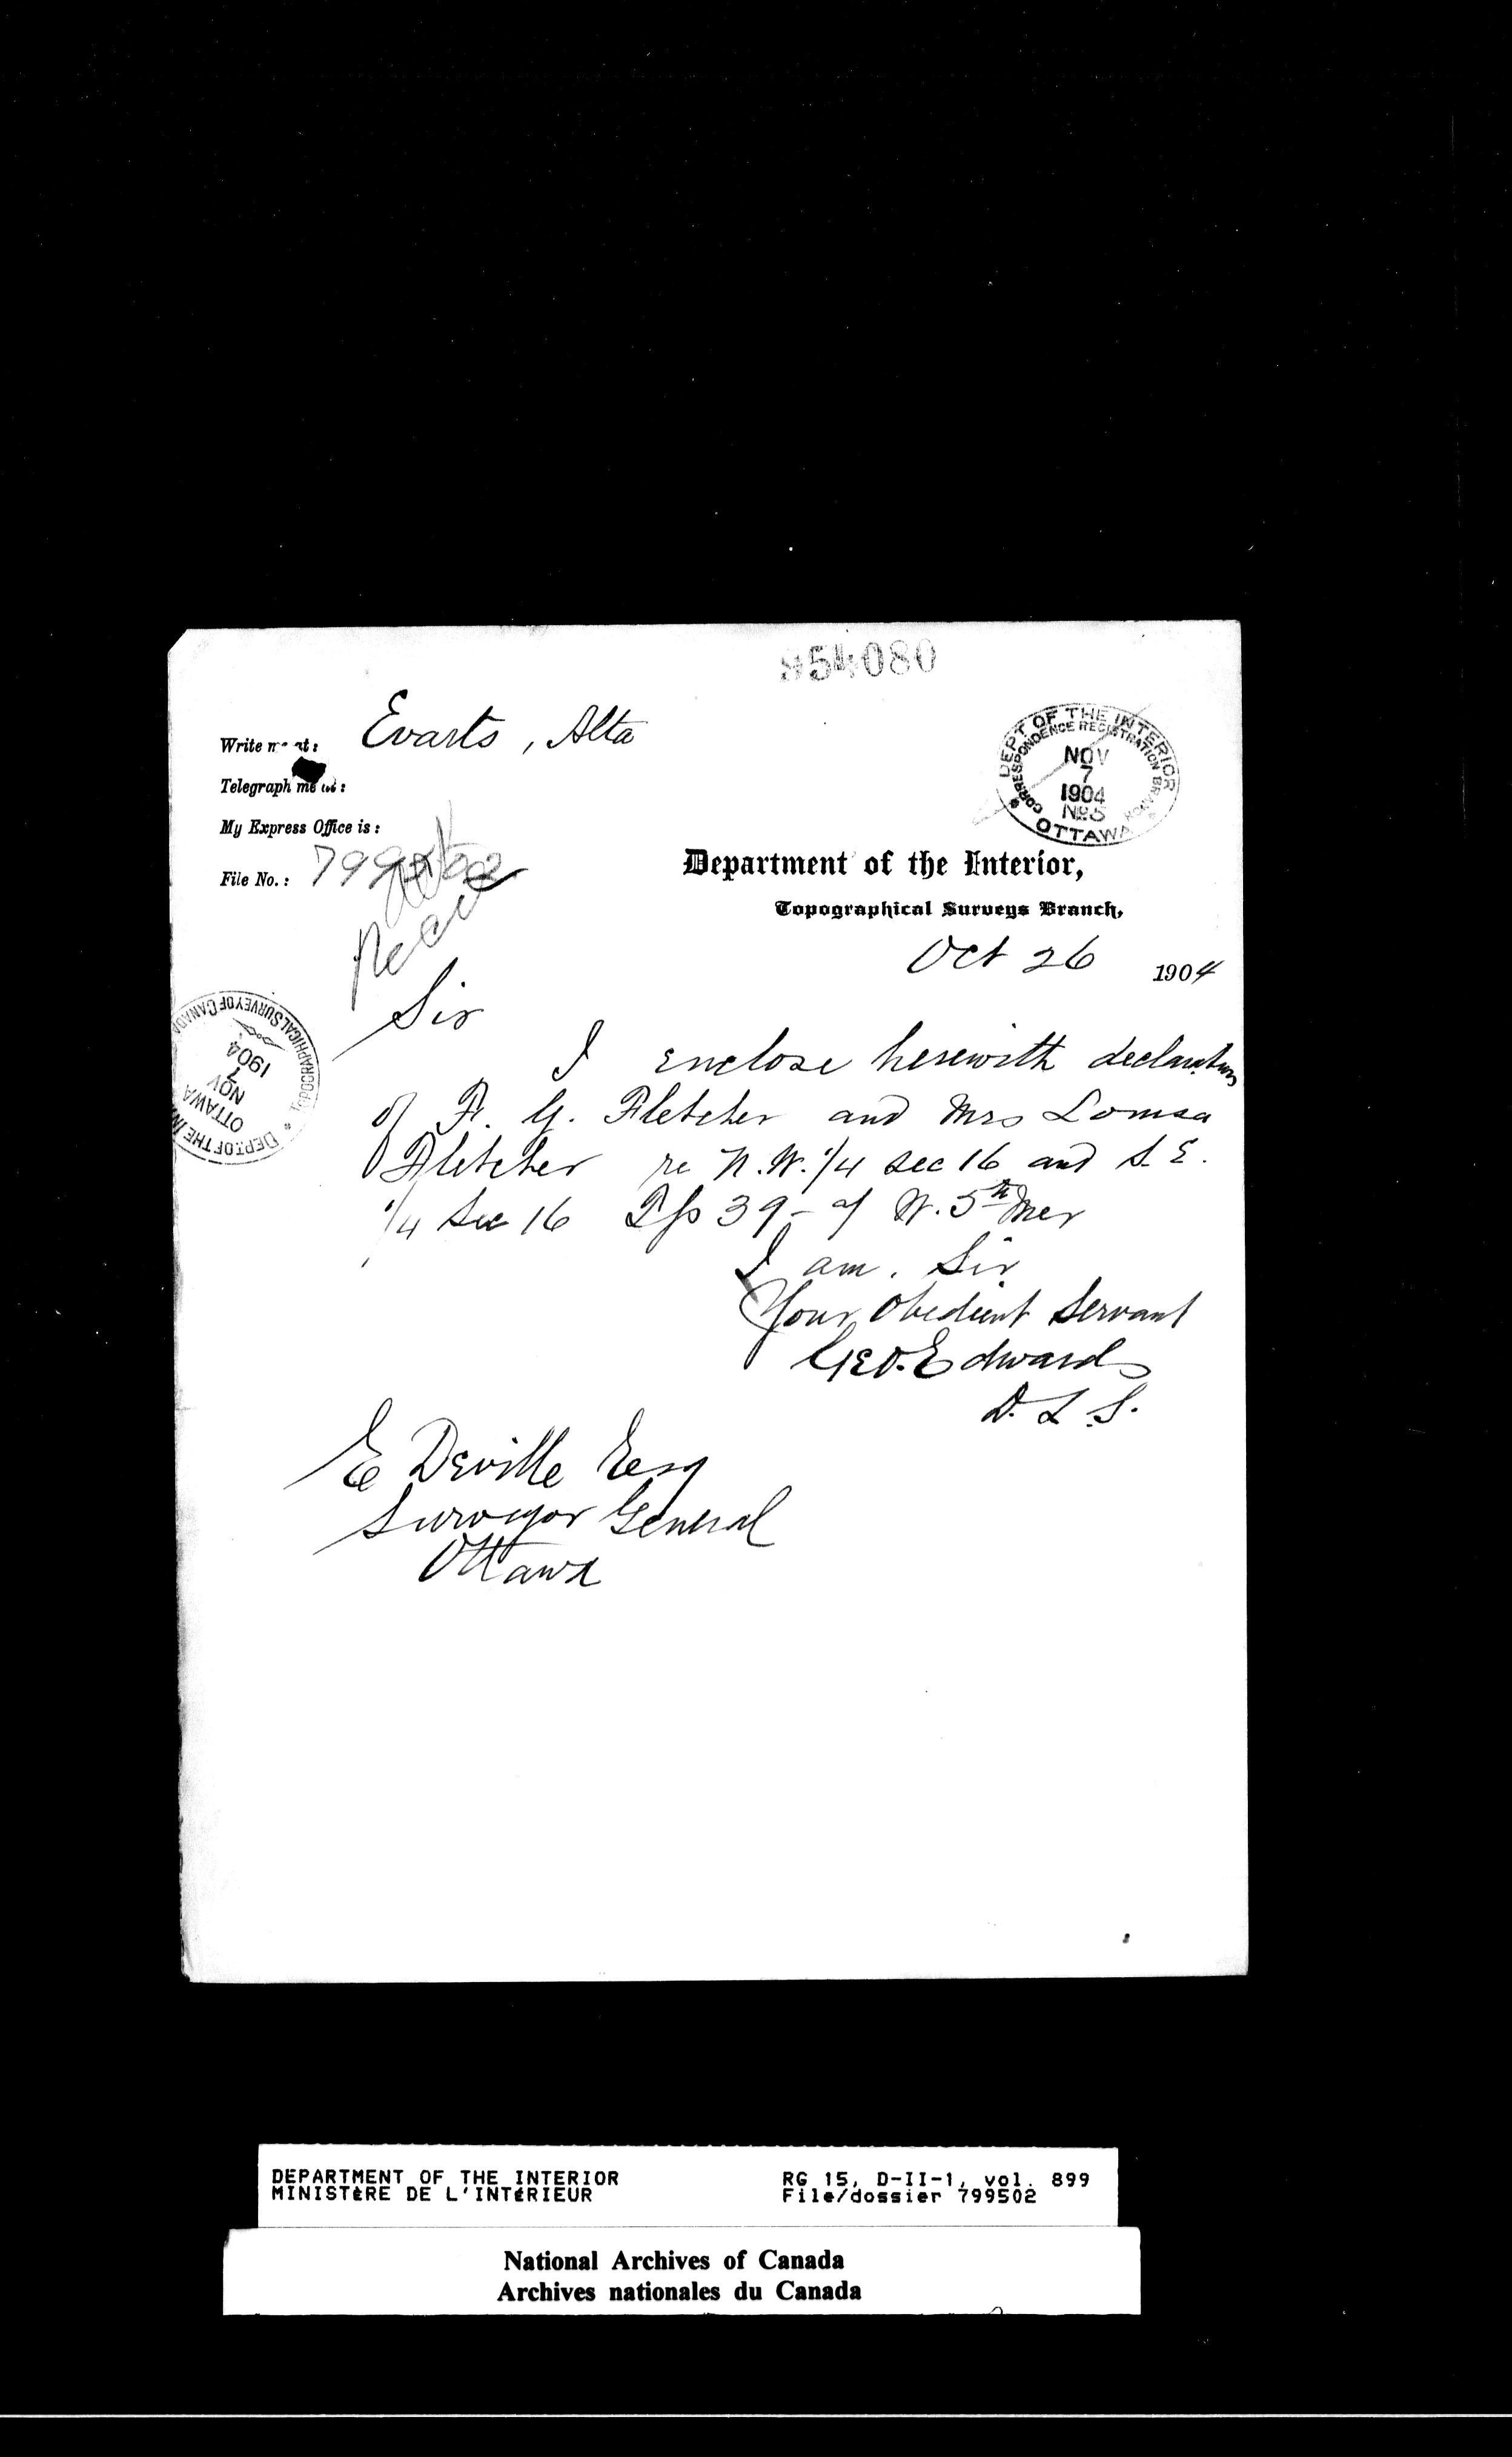 54080
Write me at: Evarts, Alta
Telegraph me at:
My Express Office is:
File No.: 799502
DEPT OF THE INTERIOR
CORRESPONDENCE REGISTRATION BRANCH
NOV
7
1904
No 5
OTTAWA
Department of the Interior,
Topographical Surveys Branch,
Oct 26 1904
TOPOGRAPHICAL SURVEY OF CANADA
1904
7
NOV
OTTAWA
DEPT OF THE IN
Sir
I enclose herewith declarations
of F. G. Fletcher and Mrs Louisa
Fletcher re N.W. 1/4 sec 16 and S. E.
1/4 Sec 16 Tp 39 - of W. 5th Mer
I am, Sir
Your Obedient Servant
Geo. Edwards
D. L. S.
E Deville Esq
Surveyor General
Ottawa
DEPARTMENT OF THE INTERIOR
MINISTÈRE DE L'INTÉRIEUR
RG 15, D-II-1, vol. 899
File/dossier 799502
National Archives of Canada
Archives nationales du Canada